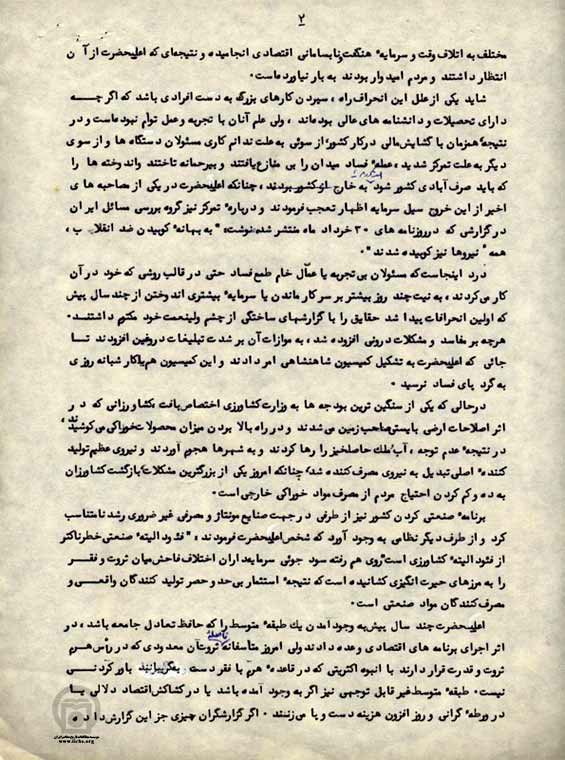 ۲
مختلف به اتلاف وقت و سرمایه هنگفت و نابسامانی اقتصادی انجامیده و نتیجه‌ای که اعلیحضرت از آن
انتظار داشتند و مردم امیدوار بودند به بار نیاورده‌است.
شاید یکی از علل این انحراف راه، سپردن کارهای بزرگ به دست افرادی باشد که اگر چه
دارای تحصیلات و دانشنامه های عالی بوده‌اند، ولی علم آنان با تجربه و عمل توأم نبوده‌است و در
نتیجه همزمان با گشایش مالی در کار کشور از سوئی به علت ندانم کاری مسئولان دستگاه ها و از سوی
دیگر به علت تمرکز شدید، عمله فساد میدان را بی منازع یافتند و بیرحمانه تاختند و اندوخته ها را
که باید صرف آبادی کشور شود به خارج از کشور بردند، چنانکه اعلیحضرت در یکی از مصاحبه های
اخیر از این خروج سیل سرمایه اظهار تعجب فرمودند و درباره تمرکز نیز گروه بررسی مسائل ایران
در گزارشی که در روزنامه های ۳۰ خرداد ماه منتشر شده نوشت: "به بهانه کوبیدن ضد انقلاب،
همه نیروها نیز کوبیده شدند".
درد اینجاست که مسئولان بی تجربه یا عمّال خام طمع فساد حتی در قالب روشی که خود در آن
کار می‌کردند، به نیت چند روز بیشتر بر سر کار ماندن یا سرمایه بیشتری اندوختن از چند سال پیش
که اولین انحرافات پیدا شد حقایق را با گزارشهای ساختگی از چشم ولینعمت خود مکتوم داشتند.
هرچه بر مفاسد و مشکلات درونی افزوده شد، به موازات آن بر شدت تبلیغات دروغین افزودند تا
جائی که اعلیحضرت به تشکیل کمیسیون شاهنشاهی امر دادند و این کمیسیون هم با کار شبانه روزی
به گرد پای فساد نرسید.
درحالی که یکی از سنگین ترین بودجه ها به وزارت کشاورزی اختصاص یافت، کشاورزانی که در
اثر اصلاحات ارضی بایستی صاحب زمین می شدند و در راه بالا بردن میزان محصولات خوراکی می‌کوشیدند،
در نتیجه عدم توجه، آب و ملک حاصلخیز را رها کردند و به شهرها هجوم آوردند و نیروی عظیم تولید
کننده اصلی تبدیل به نیروی مصرف کننده شد، چنانکه امروز یکی از بزرگترین مشکلات بازگشت کشاورزان
به ده و کم کردن احتیاج مردم از مصرف مواد خوراکی خارجی است.
برنامه صنعتی کردن کشور نیز از طرفی در جهت صنایع مونتاژ و مصرفی غیر ضروری رشد نامتناسب
کرد و از طرف دیگر نظامی به وجود آورد که شخص اعلیحضرت فرمودند، "فئودالیته صنعتی خطرناکتر
از فئودالیته کشاورزی است" روی هم رفته سود جوئی سرمایه‌داران اختلاف فاحش میان ثروت و فقر
را به مرزهای حیرت انگیزی کشانیده است که نتیجه استثمار بی حد و حصر تولید کنندگان واقعی و
مصرف کنندگان مواد صنعتی است.
اعلیحضرت چند سال پیش به وجود آمدن یک طبقه متوسط را که حافظ تعادل جامعه باشد، در
اثر اجرای برنامه های اقتصادی وعده دادند ولی امروز متأسفانه فاصله ثروت آن معدودی که در رأس هرم
ثروت و قدرت قرار دارند با انبوه اکثریتی که در قاعده هرم با فقر دست به گریبانند باور کردنی
نیست. طبقه متوسط غیر قابل توجهی نیز اگر به وجود آمده باشد یا در کشاکش اقتصاد دلالی یا
در ورطه گرانی و روز افزون هزینه دست و پا می زنند. اگر گزارشگران چیزی جز این گزارش داده
www.iichs.org